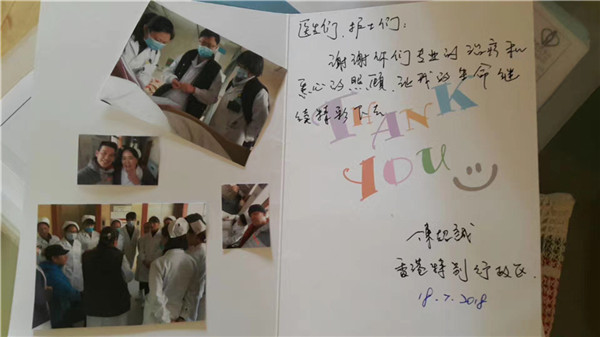 医生们，护士们：
谢谢你们专业的治疗和
悉心的照顾 让我的生命继
续精彩下去
THANK
YOU
陈 诚
香港特别行政区
18.7.2018